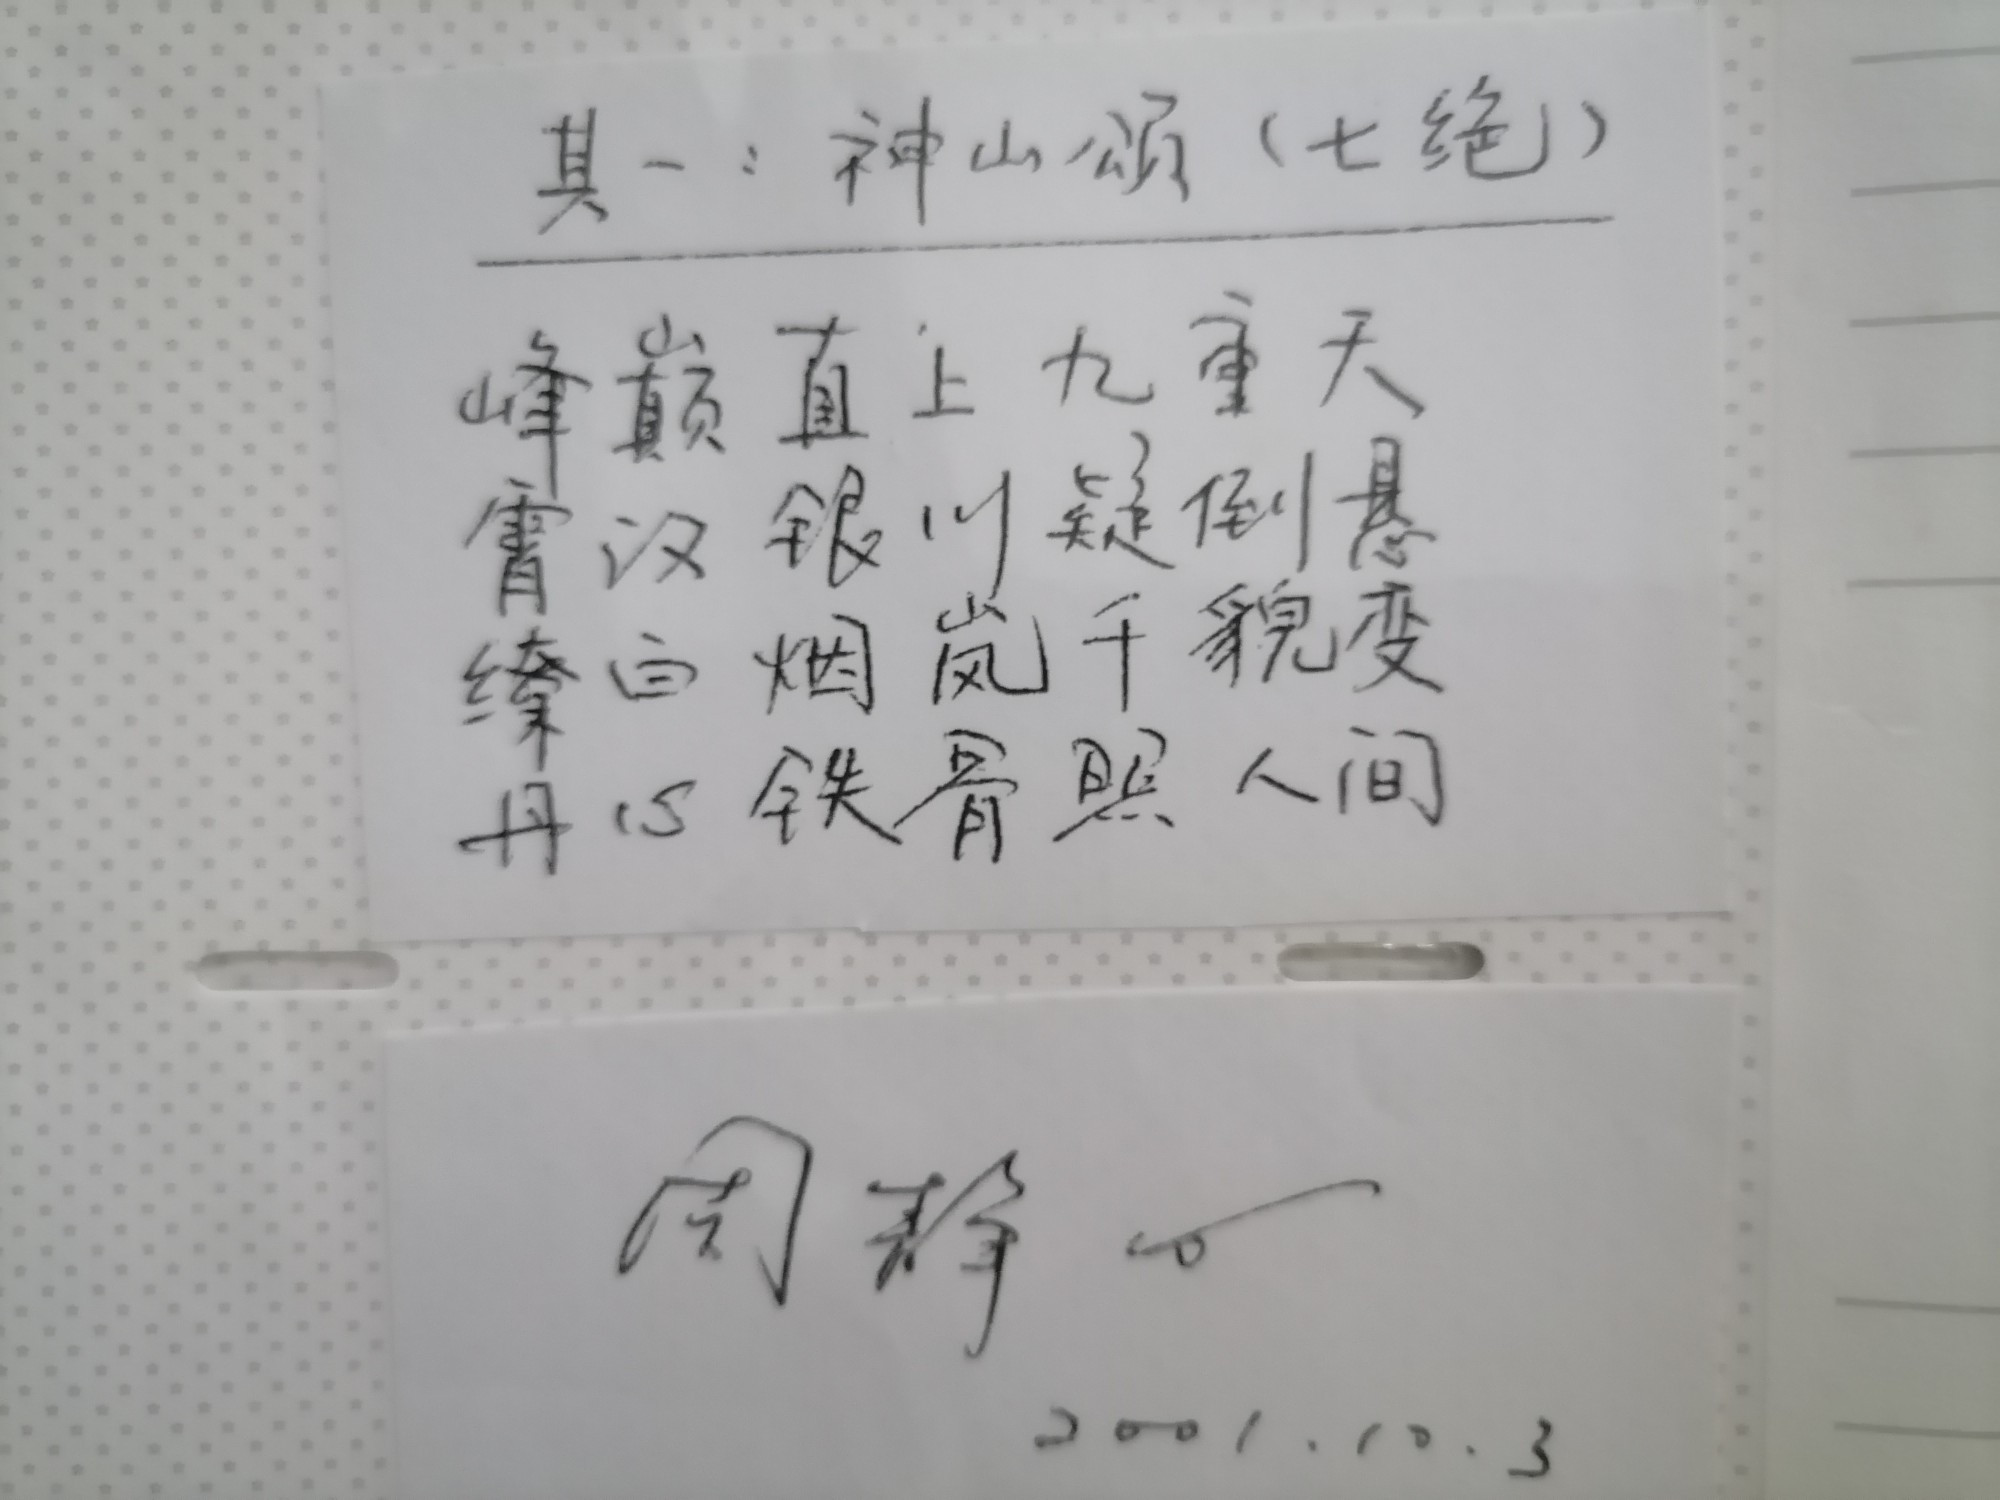 其一：神山颂（七绝）
峰巅直上九重天
霄汉银川疑倒悬
缭白烟岚千貌变
丹心铁骨照人间
周静
2001.10.3